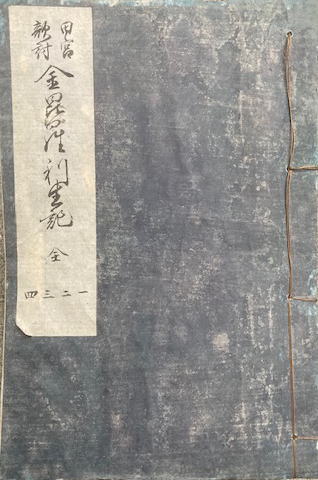 田宮
敵討
金毘羅利生記 全
一二三四